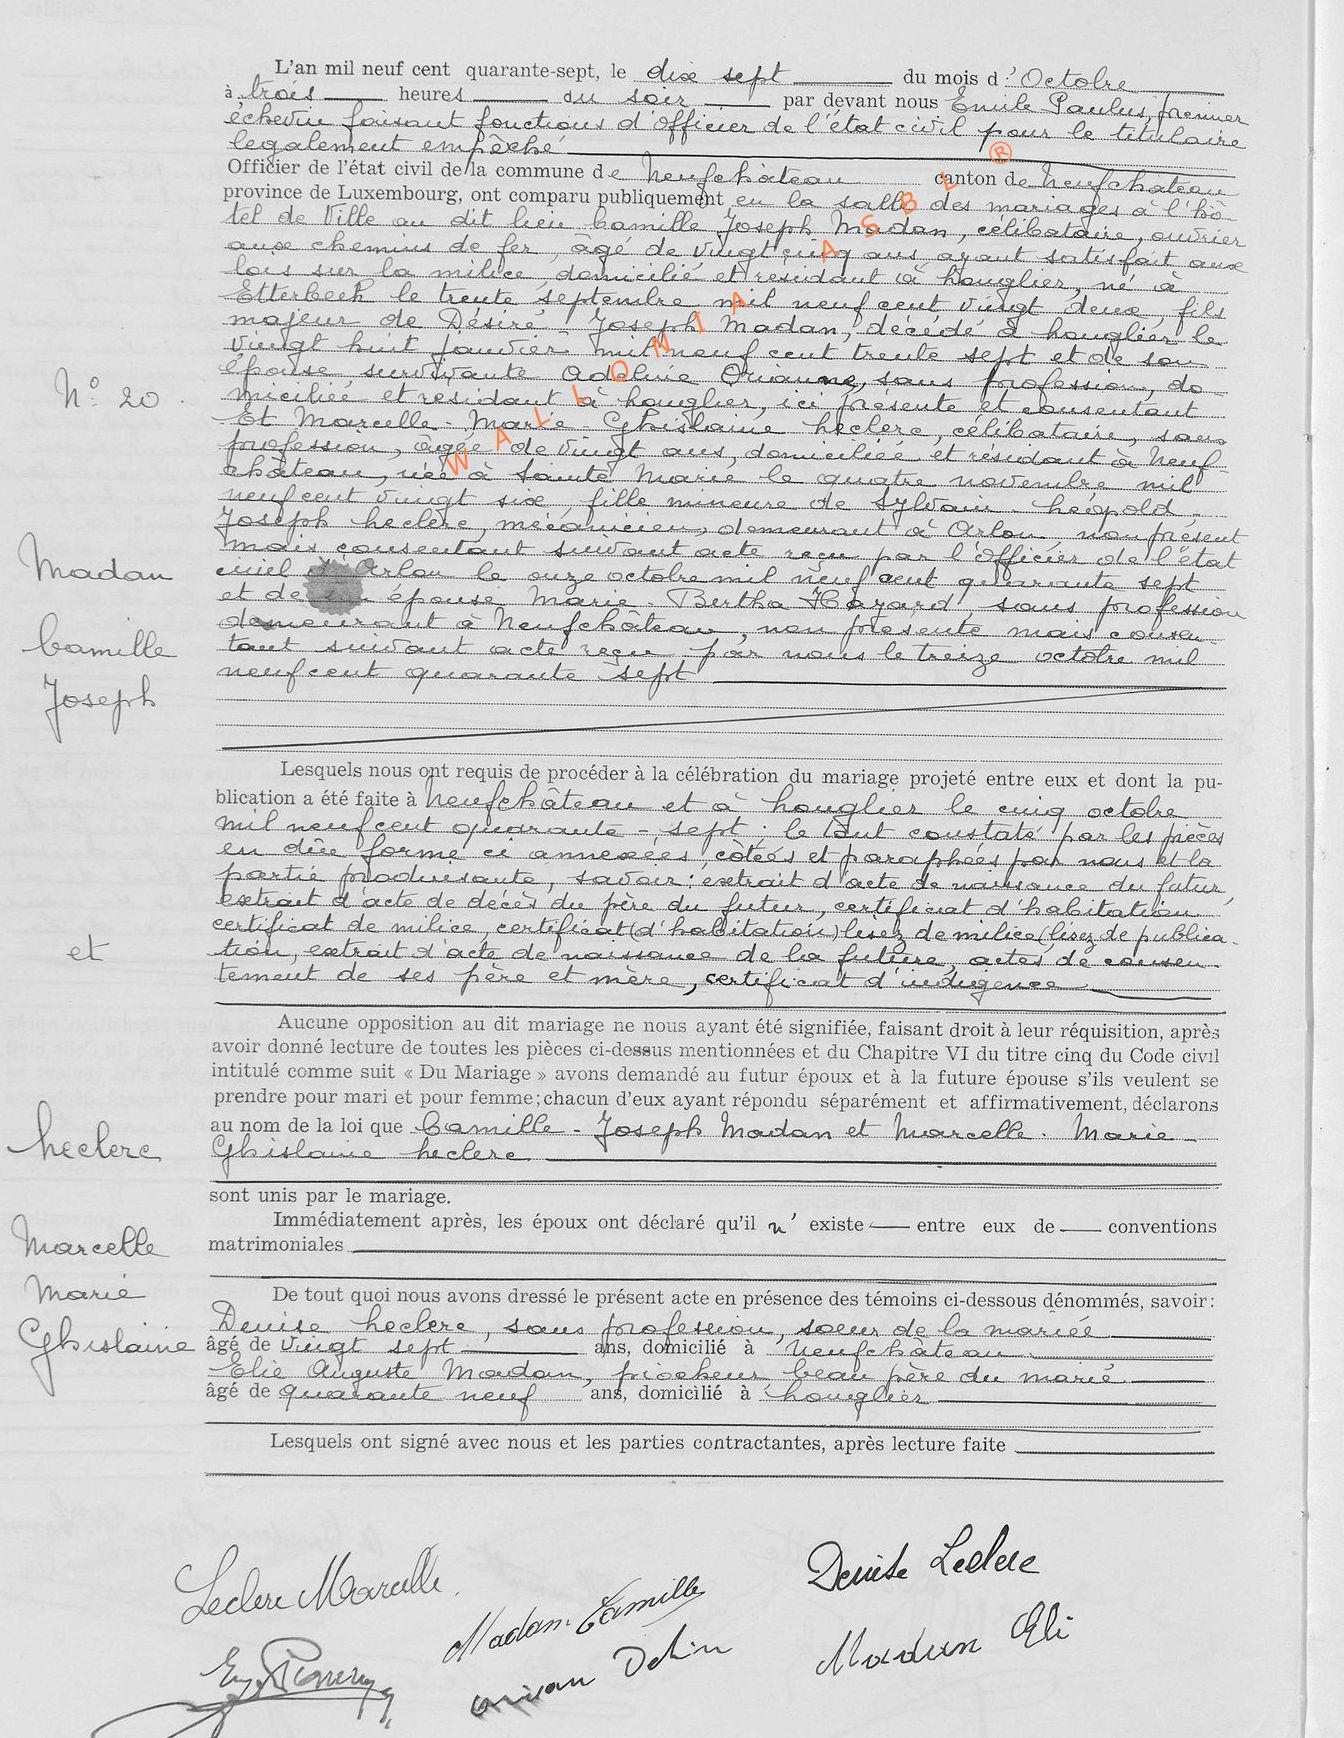 L'an mil neuf cent quarante-sept, le dix sept du mois d'Octobre
à trois heures du soir par devant nous Emile Paulus, premier
échevin faisant fonctions d'officier de l'état civil pour le titulaire
legalement empêché
Officier de l'état civil de la commune de Neufchâteau canton de Neufchâteau
province de Luxembourg, ont comparu publiquement en la salle des mariages à l'hô-
tel de Ville au dit lieu Camille Joseph Madan, célibataire, ouvrier
aux chemins de fer, âgé de vingt cinq ans ayant satisfait aux
lois sur la milice, domicilié et residant à Longlier, né à
Etterbeek le trente septembre mil neuf cent vingt deux, fils
majeur de Désiré Joseph Madan, décédé à Longlier le
vingt huit janvier mil neuf cent trente sept et de son
épouse survivante Adeline Orianne, sans profession, do
miciliée et residant à Longlier, ici présente et consentant
Et Marcelle-Marie-Ghislaine Leclere, célibataire, sans
profession, âgée de vingt ans, domiciliée et residant à Neuf-
château, née à Sainte Marie le quatre novembre mil
neuf cent vingt six, fille mineure de Sylvain-Léopold-
Joseph Leclere, mécanicien, demeurant à Arlon, non présent
mais consentant suivant acte reçu par l'Officier de l'état
civil Arlon le onze octobre mil neuf cent quarante sept
et de épouse Marie-Bertha Hazard, sans profession
demeurant à Neufchâteau, non présente mais consen-
tant suivant acte reçu par nous le treize octobre mil
neuf cent quarante sept
Lesquels nous ont requis de procéder à la célébration du mariage projeté entre eux et dont la pu-
blication a été faite à Neufchâteau et à Longlier le cinq octobre
mil neuf cent quarante-sept; le tout constaté par les pièces
en dûe forme ci annexées, côtées et paraphées par nous et la
partie produisante, savoir: extrait d'acte de naissance du futur,
extrait d'acte de décès du père du futur, certificat d'habitation
certificat de milice, certificat (d'habitation) lisez de milice (lisez de publica-
tion, extrait d'acte de naissance de la future, actes de consen-
tement de ses père et mère, certificat d'indigence
Aucune opposition au dit mariage ne nous ayant été signifiée, faisant droit à leur réquisition, après
avoir donné lecture de toutes les pièces ci-dessus mentionnées et du Chapitre VI du titre cinq du Code civil
intitulé comme suit « Du Mariage » avons demandé au futur époux et à la future épouse s'ils veulent se
prendre pour mari et pour femme; chacun d'eux ayant répondu séparément et affirmativement, déclarons
au nom de la loi que Camille-Joseph Madan et Marcelle-Marie-
Ghislaine Leclere
sont unis par le mariage.
Immédiatement après, les époux ont déclaré qu'il n'existe entre eux de conventions
matrimoniales
De tout quoi nous avons dressé le présent acte en présence des témoins ci-dessous dénommés, savoir:
Denise Leclere, sans profession, soeur de la mariée
âgé de vingt sept ans, domicilié à Neufchâteau
Elie Auguste Madan, piocheur beau père du marié
âgé de quarante neuf ans, domicilié à Longlier
Lesquels ont signé avec nous et les parties contractantes, après lecture faite
N° 20
Madan
Camille
Joseph
et
Leclerc
Marcelle
Marie
Ghislaine
WALLONIA ASBL ®
Leclere Marcelle.
Madan Camille
Denise Leclere
Madan Eli